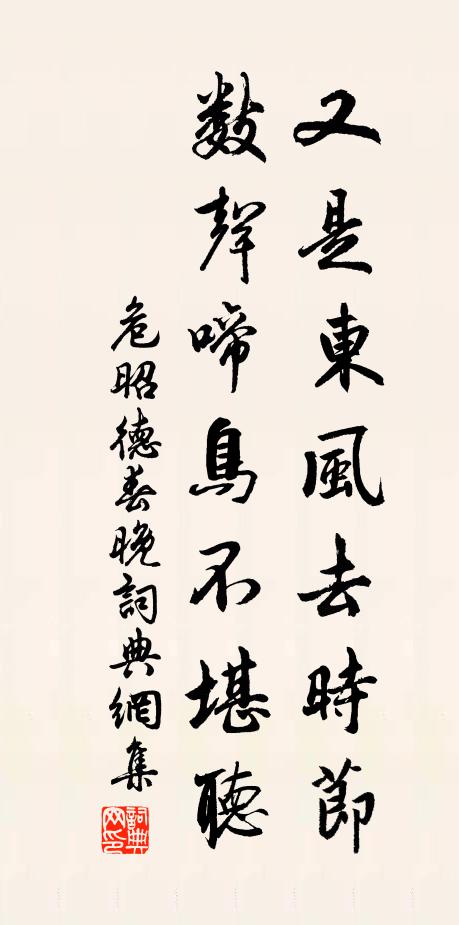 又是東風去時節
數聲啼鳥不堪聽
危昭德春晚詞典網集
詞典網印